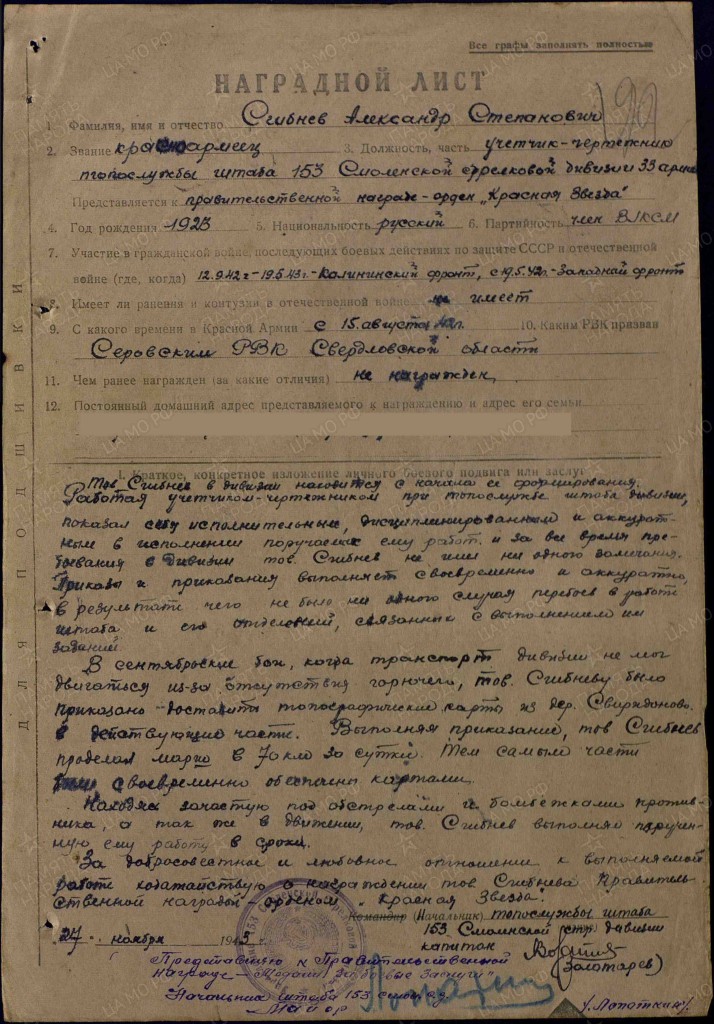 Все графы заполнять полностью
НАГРАДНОЙ ЛИСТ
1. Фамилия, имя и отчество Сгибнев Александр Степанович
2. Звание красноармеец 3. Должность, часть учетчик-чертежник
топослужбы штаба 153 Смоленской стрелковой дивизии 33 армии
Представляется к правительственной награде - орден „Красная Звезда"
4. Год рождения 1923 5. Национальность русский 6. Партийность член ВЛКСМ
7. Участие в гражданской войне, последующих боевых действиях по защите СССР и отечественной
войне (где, когда) 12.9.42г - 19.5.43г. - Калининский фронт, с 19.5.42г. - Западный фронт
8. Имеет ли ранения и контузии в отечественной войне не имеет
9. С какого времени в Красной Армии с 15. августа 42г. 10. Каким РВК призван
Серовским РВК Свердловской области
11. Чем ранее награжден (за какие отличия) не награжден
12. Постоянный домашний адрес представляемого к награждению и адрес его семьи
I. Краткое, конкретное изложение личного боевого подвига или заслуг
Тов. Сгибнев в дивизии находится с начала ее формирования.
Работая учетчиком-чертежником при топослужбе штаба дивизии,
показал себя исполнительным, дисциплинированным и аккурат-
ным в исполнении поручаемых ему работ и за все время пре-
бывания в дивизии тов. Сгибнев не имел ни одного замечания.
Приказы и приказания выполняет своевременно и аккуратно,
в результате чего не было ни одного случая перебоев в работе
штаба и его отделений, связанных с выполнением им
заданий.
В сентябрьские бои, когда транспорт дивизии не мог
двигаться из-за отсутствия горючего, тов. Сгибневу было
приказано доставить топографические карты из дер. Свиридоново
в действующие части. Выполняя приказание, тов Сгибнев
проделал марш в 70 км за сутки. Тем самым части
были своевременно обеспечены картами.
Находясь зачастую под обстрелами и бомбежками против-
ника, а так же в движении, тов. Сгибнев выполнял поручен-
ную ему работу в сроки.
За добросовестное и любовное отношение к выполняемой
работе ходатайствую о награждении тов. Сгибнева Правитель-
ственной наградой - орденом „Красная Звезда".
Командир (Начальник) топослужбы штаба
153 Смоленской стр. дивизии
27. ноября 1943 г. капитан
(Золотарев)
Представляю к Правительственной
Награде - Медали „За боевые Заслуги"
Начальник штаба 153 смол. сд
Майор
/Лопаткин/
ДЛЯ ПОДШИВКИ
ЦАМО РФ